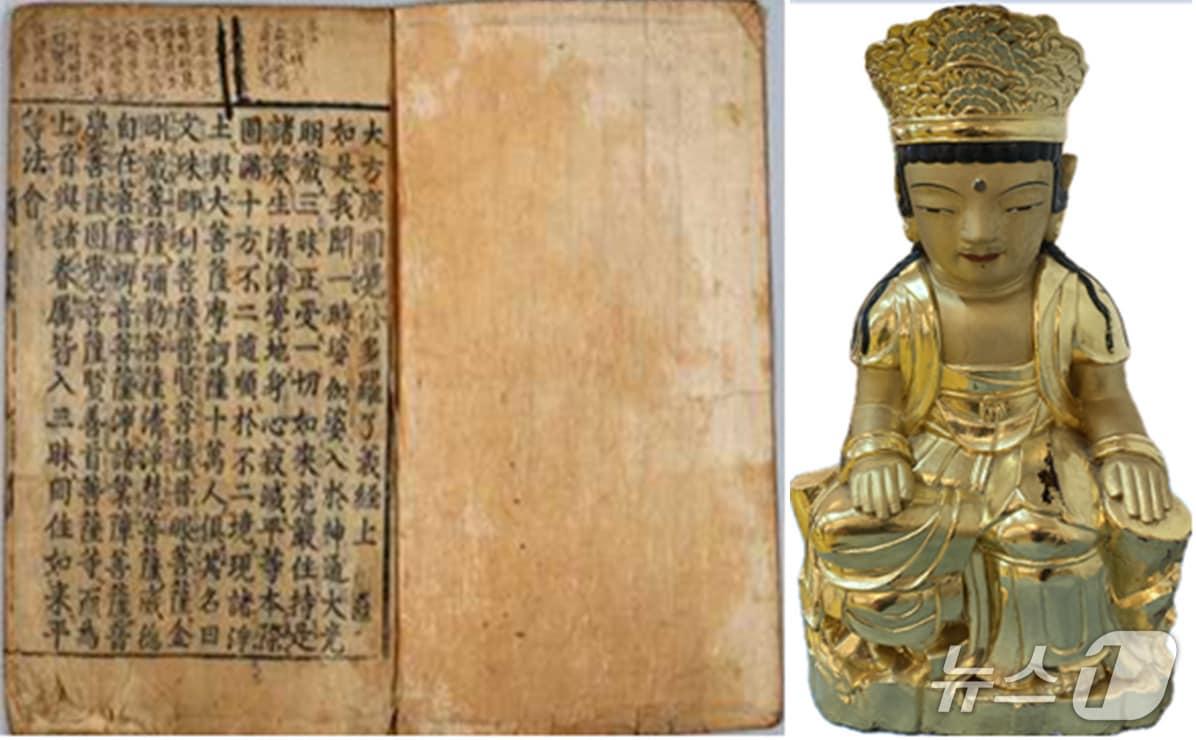 大方廣圓覺修多羅了義經上
如是我聞一時婆伽婆入扵神通大光
明藏三昧正受一切如來光嚴住持是
諸衆生清淨覺地身心寂滅平等本際
圓滿十方不二隨順扵不二境現諸淨
土與大菩薩摩訶薩十萬人俱其名曰
文殊師利菩薩普賢菩薩普眼菩薩金
剛藏菩薩彌勒菩薩清淨慧菩薩威德
自在菩薩辨音菩薩淨諸業障菩薩普
覺菩薩圓覺菩薩賢善首菩薩等而為
上首與諸眷屬皆入三昧同住如來平
等法會
뉴스1